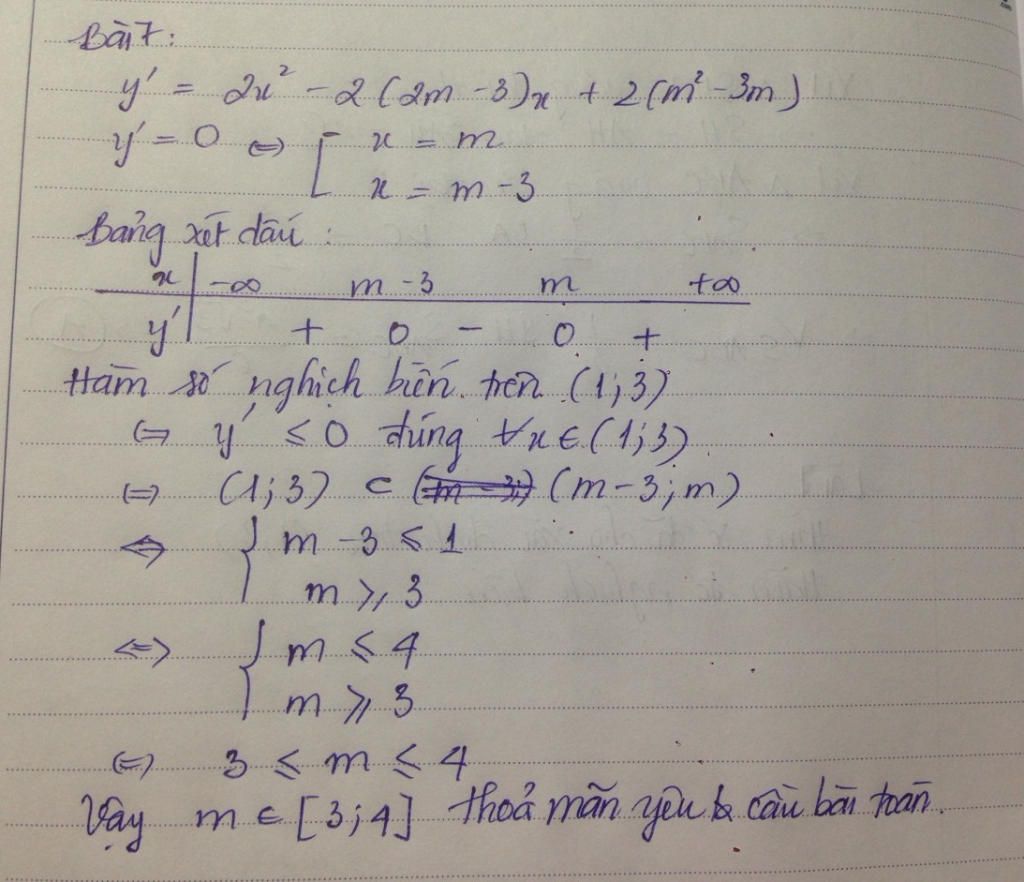 Bài 7:
y' = 2x² - 2(2m - 3)x + 2(m² - 3m)
y' = 0 ⇔ [ x = m
x = m - 3
Bảng xét dấu:
x | -∞ m - 3 m +∞
y' | + 0 - 0 +
Hàm số nghịch biến trên (1;3)
⇔ y' ≤ 0 đúng ∀x ∈ (1;3)
⇔ (1;3) ⊂ (m-3;m)
⇔ { m - 3 ≤ 1
m ≥ 3
⇔ { m ≤ 4
m ≥ 3
⇔ 3 ≤ m ≤ 4
Vậy m ∈ [3;4] thoả mãn yêu cầu bài toán.